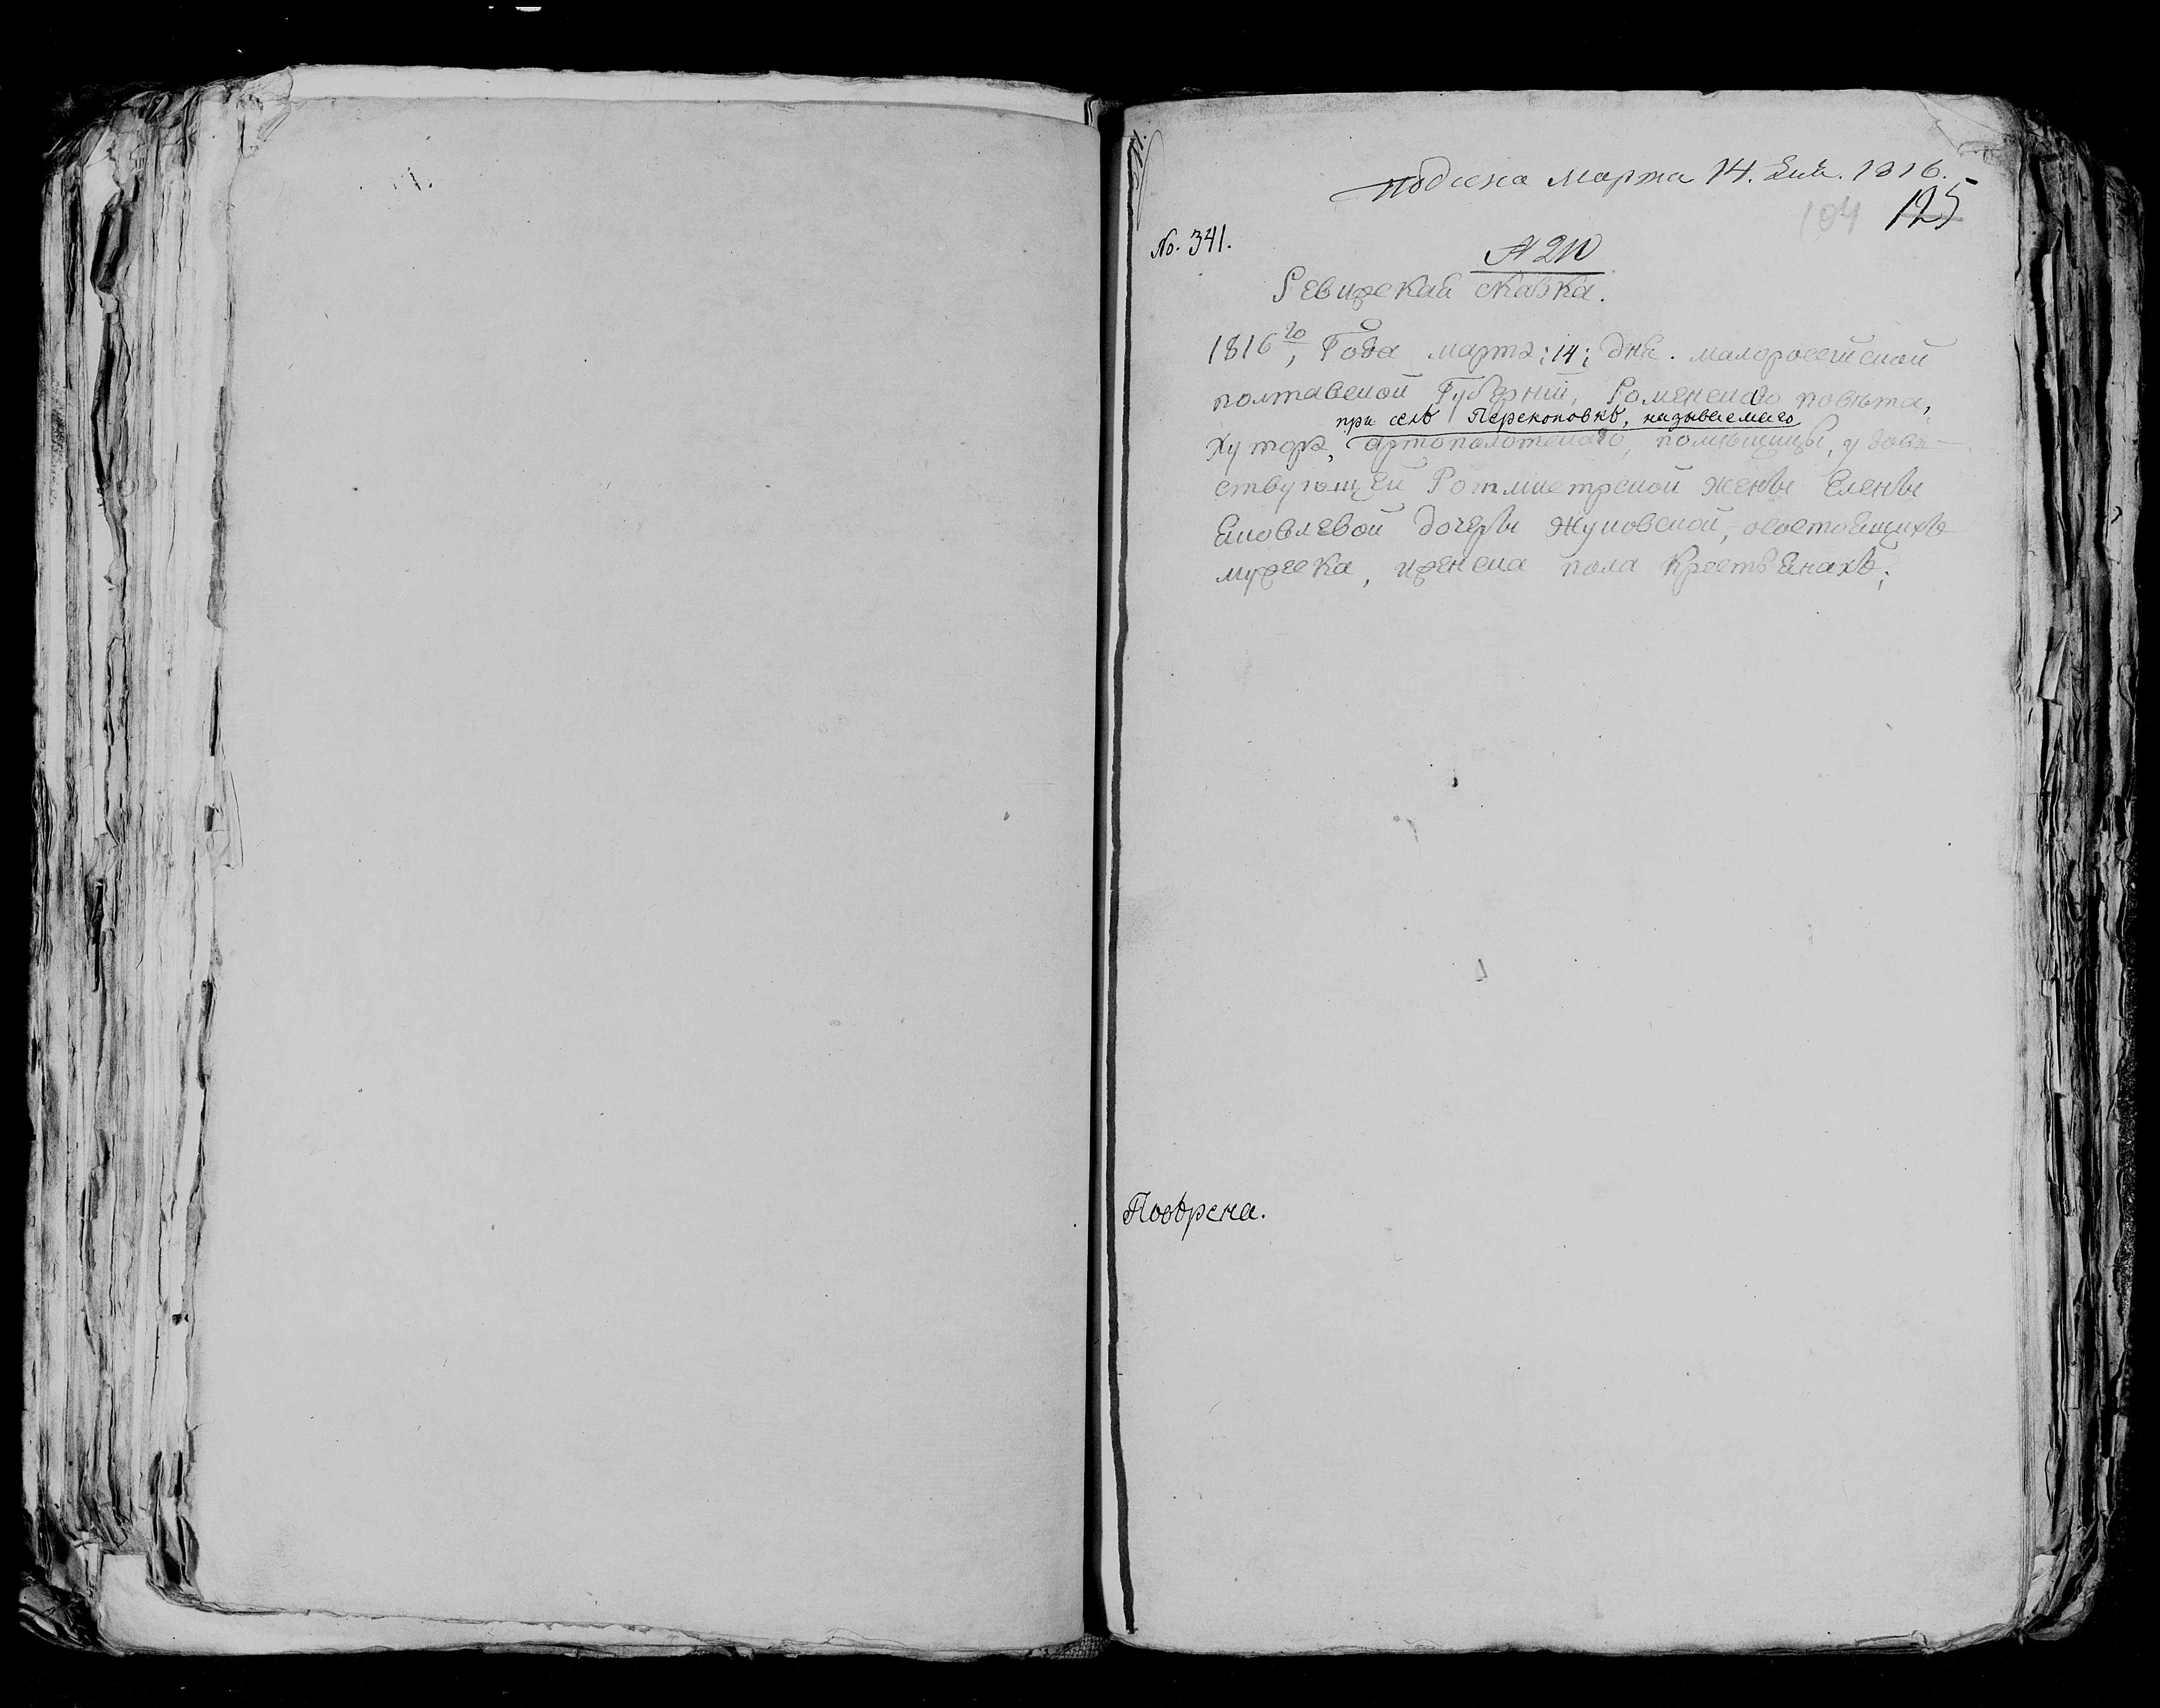 Подана марта 14. дня. 1816.
104 125
No. 341.
Ревижская сказка.
1816го, Года марта; 14; дня. малоросейской
полтавской Губерніи, Роменскаго повѣта,
при селѣ Перекоповкѣ, называемаго
Хутора, артополотскаго, помѣщицы, у довъ-
ствующей Ротмистрской жены Елены
Яковлевой дочеры Жуковской, осостоящихъ
мужеска, иженска пола Крестьянахъ;
Повѣрена.